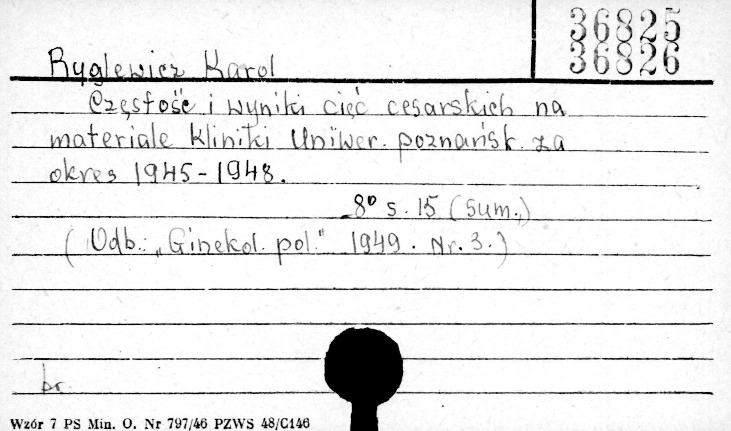 36825
36826
Ryglewicz Karol
Częstość i wyniki cięć cesarskich na
materiale Kliniki Uniwer. poznańsk. za
okres 1945-1948.
8° s. 15 (Sum.)
(Odb.: "Ginekol. pol." 1949. Nr. 3.)
br.
Wzór 7 PS Min. O. Nr 797/46 PZWS 48/C146